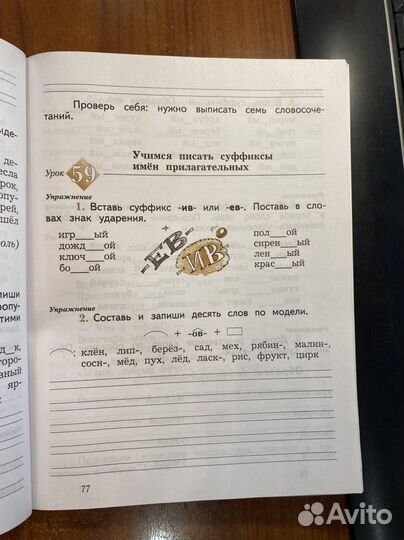 Проверь себя: нужно выписать семь словосоче-
таний.
Урок 59
Учимся писать суффиксы
имён прилагательных
Упражнение
1. Вставь суффикс -ив- или -ев-. Поставь в сло-
вах знак ударения.
игр___ый
дожд___ой
ключ___ой
бо___ой
-ЕВ-
ИВ
пол___ой
сирен___ый
лен___ый
крас___ый
Упражнение
2. Составь и запиши десять слов по модели.
+ -ов- +
: клён, лип-, берёз-, сад, мех, рябин-, малин-,
сосн-, мёд, пух, лёд, ласк-, рис, фрукт, цирк
77
Avito